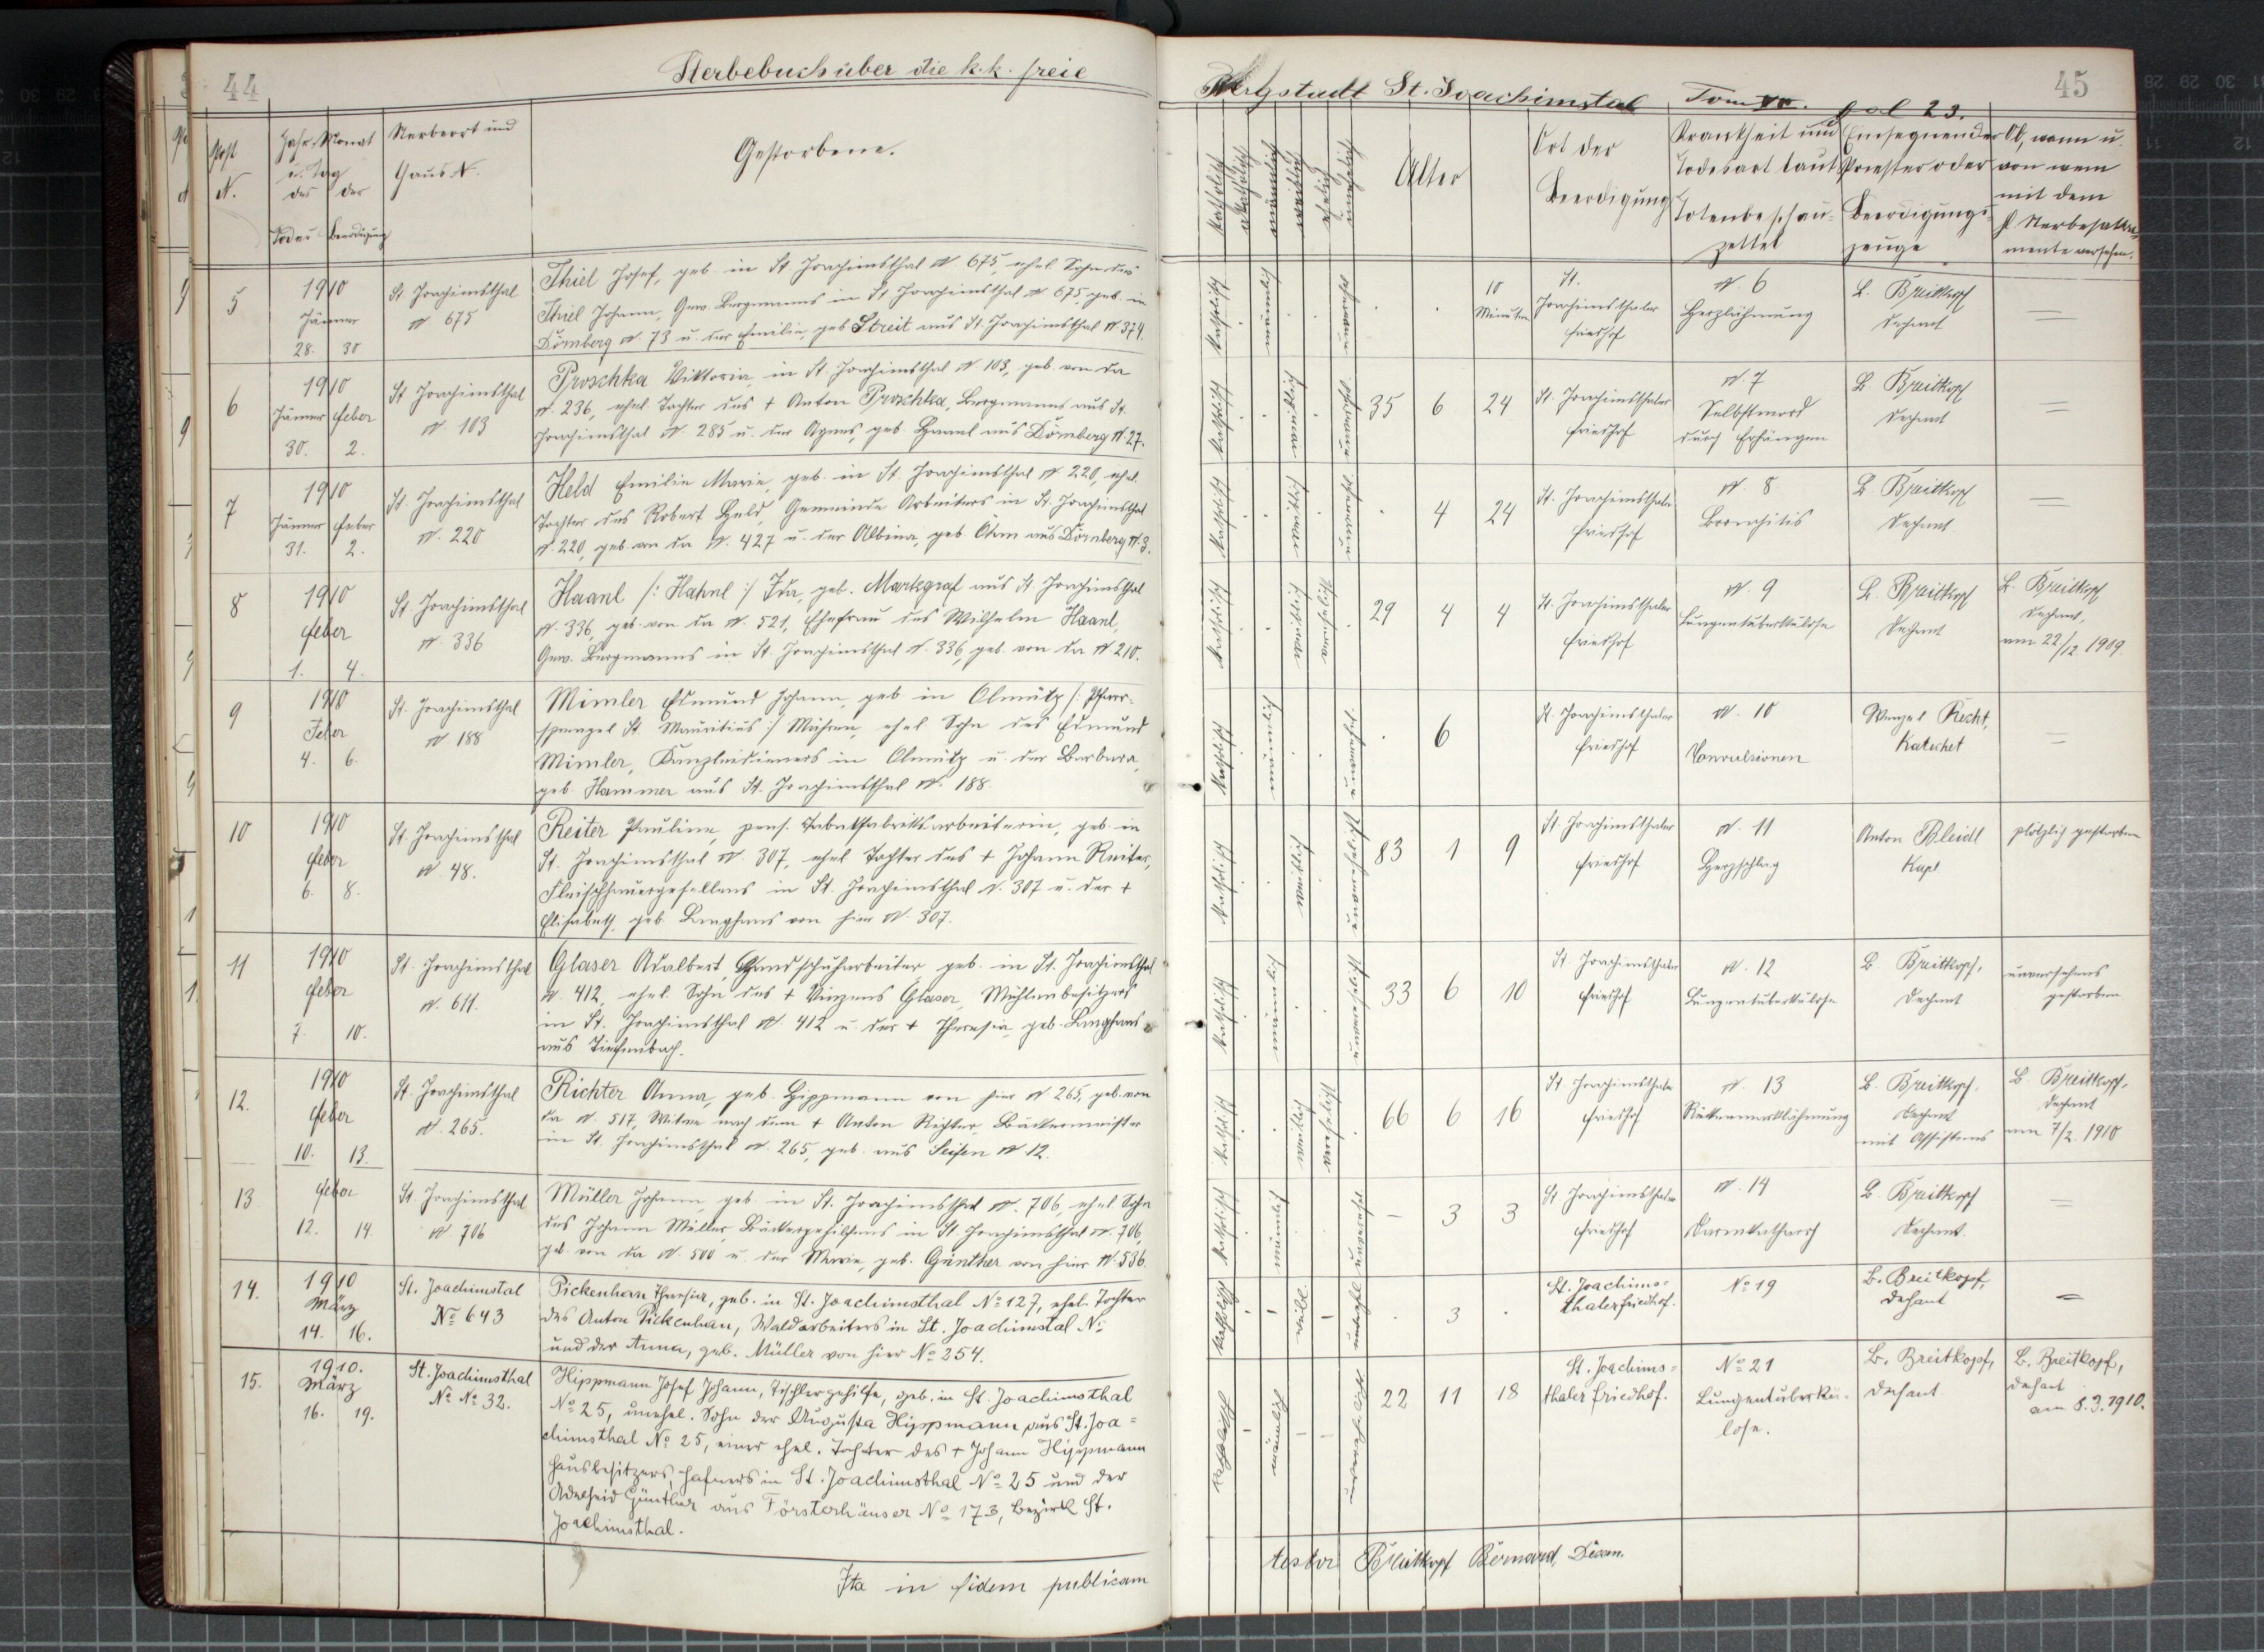 44
Sterbebuch über die k.k. freie
Post
N.
Jahr, Monat
u. Tag
des der
Todes Beerdigung
Sterbeort und
Haus N.
Gestorbene.
5
1910
Jänner
28. 30
St Joachimsthal
N 675
Thiel Josef, geb. in St Joachimsthal N 675, ehel. Sohn des
Thiel Johann, Gew. Bergmanns in St. Joachimsthal N. 675, geb. in
Dürnberg N. 73 u. der Emilie, geb Streit aus St. Joachimsthal N 374.
6
1910
Jänner Feber
30. 2.
St Joachimsthal
N 103
Proschka Viktoria, in St. Joachimsthal N. 103, geb. von da
N. 236, ehel. Tochter des + Anton Proschka, Bergmanns aus St.
Joachimsthal N. 285 u. der Agnes, geb. Haanl aus Dürnberg N. 27.
7
1910
Jänner Feber
31. 2.
St. Joachimsthal
N. 220
Held Emilie Marie, geb. in St. Joachimsthal N 220, ehel.
Tochter des Robert Held, Gemeinde Arbeiters in St. Joachimsthal
N. 220, geb. von da N. 427 u. der Albina, geb. aus Dürnberg N. 3.
8
1910
Feber
1. 4.
St. Joachimsthal
N. 336
Haanl /: Hahnl :/ Ida, geb. Markgraf aus St. Joachimsthal
N. 336, geb. von da N. 521, Ehefrau des Wilhelm Haanl,
Gew. Bergmanns in St. Joachimsthal N. 336, geb. von da N 210.
9
1910
Feber
4. 6.
St. Joachimsthal
N 188
Mimler Edmund Johann, geb in Olmütz /: Pfarr-
sprengel St. Mauritius :/ Mähren, ehel Sohn des Edmund
Mimler, Kanzleidieners in Olmütz u. der Barbara,
geb. Hammer aus St. Joachimsthal N. 188.
10
1910
Feber
6. 8.
St. Joachimsthal
N. 48.
Reiter Pauline, pens. Tabakfabriksarbeiterin, geb. in
St. Joachimsthal N. 307, ehel Tochter des + Johann Reiter,
Fleischhauergesellens in St. Joachimsthal N. 307 u. der +
Elisabeth, geb. Langhans von hier N. 307.
11
1910
Feber
7. 10.
St. Joachimsthal
N. 611.
Glaser Adalbert, Handschuharbeiter geb. in St. Joachimsthal
N. 412, ehel. Sohn des + Vinzens Glaser, Mühlenbesitzers
in St. Joachimsthal N. 412 u. der + Theresia, geb. Langhans
aus Tiefenbach.
12.
1910
Feber
10. 13.
St. Joachimsthal
N. 265.
Richter Anna, geb. Hippmann von hier N 265, geb. von
da N. 517, Witwe nach dem + Anton Richter, Bäckermeister
in St. Joachimsthal N. 265, geb. aus Seifen N 12.
13
Feber
12. 14
St. Joachimsthal
N. 706
Müller Johann, geb. in St. Joachimsthal N. 706, ehel Sohn
des Johann Müller, Bäckergehilfens in St. Joachimsthal N. 706,
geb. von da N. 500 u. der Marie, geb. Günther von hier N. 536.
14.
1910
März
14. 16.
St. Joachimstal
No 643
Pickenhan Theresia, geb. in St. Joachimsthal No 127, ehel. Tochter
des Anton Pickenhan, Waldarbeiters in St. Joachimstal No
und der Anna, geb. Müller von hier No 254.
15.
1910.
März
16. 19.
St. Joachimsthal
No No 32.
Hippmann Josef Johann, Tischlergehilfe, geb. in St. Joachimsthal
No 25, unehel. Sohn der Augusta Hippmann aus St. Joa=
chimsthal No 25, einer ehel. Tochter des + Johann Hippmann
Hausbesitzers, Hafners in St. Joachimsthal No 25 und der
Adelheid Günther aus Försterhäuser No 173, Bezirk St.
Joachimsthal.
Ita in fidem publicam
45
Bergstadt St. Joachimstal Tom fol 23.
katholisch
akatholisch
männlich
weiblich
ehelich
unehelich
Alter
Ort der
Beerdigung
Krankheit und
Todesart laut
Totenbeschau-
zettel
Einsegnender
Priester oder
Beerdigungs-
zeuge
Ob, wann u.
von wem
mit dem
hl Sterbesakra-
mente versehen.
katholisch männlich unverehel
10
Minuten
St.
Joachimsthaler
Friedhof
N. 6
Herzlähmung
B. Breitkopf
Dechant
katholisch weiblich unverehel.
35 6 24
St. Joachimsthaler
Friedhof
N. 7
Selbstmord
durch Erhängen
B. Breitkopf
Dechant
katholisch weiblich unverehel
4 24
St. Joachimsthaler
Friedhof
N 8
Bronchitis
B Breitkopf
Dechant
katholisch weiblich verehelicht
29 4 4
St. Joachimsthaler
Friedhof
N. 9
Lungentuberkulose
B. Breitkopf
Dechant
B. Breitkopf
Dechant,
am 22/12. 1909.
katholisch männlich unverehel.
6
St. Joachimsthaler
Friedhof
N. 10
Convulsionen
Wenzel Recht,
Katechet
katholisch weiblich unverehelicht
83 1 9
St Joachimsthaler
Friedhof
N. 11
Herzschlag
Anton Bleidl
Kapl.
plötzlich gestorben
katholisch männlich unverehelicht
33 6 10
St Joachimsthaler
Friedhof
N. 12
Lungentuberkulose
B. Breitkopf,
Dechant
unversehens
gestorben
katholisch weiblich verehelicht
66 6 16
St Joachimsthaler
Friedhof
N. 13
Rückenmarkslähmung
B. Breitkopf.
Dechant
mit Assistens
B. Breitkopf,
Dechant
am 7/2. 1910
katholisch männlich unverehel
- 3 3
St Joachimsthaler
Friedhof
N. 14
Darmkatharrh
B. Breitkopf
Dechant.
katholisch weibl. unverehel
3
St. Joachims=
thaler Friedhof.
No 19
B. Breitkopf,
Dechant
katholisch männlich unverehelicht
22 11 18
St. Joachims=
thaler Friedhof.
No 21
Lungentuberku-
lose.
B. Breitkopf,
Dechant
B. Breitkopf,
Dechant
am 8.3.1910.
testor Breitkopf Bernard, Decan.